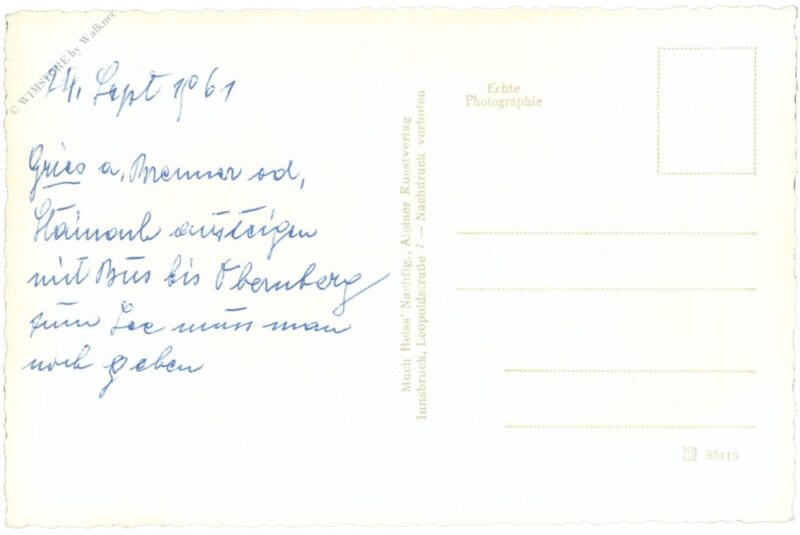 © WIMSTORE by Walkner
24. Sept 1961
Gries a. Brenner od.
Stainach aussteigen
mit Bus bis Obernberg
zum See muss man
noch gehen
Much Heiss' Nachflg., Alpiner Kunstverlag
Innsbruck, Leopoldstraße 7 — Nachdruck verboten
Echte
Photographie
85119